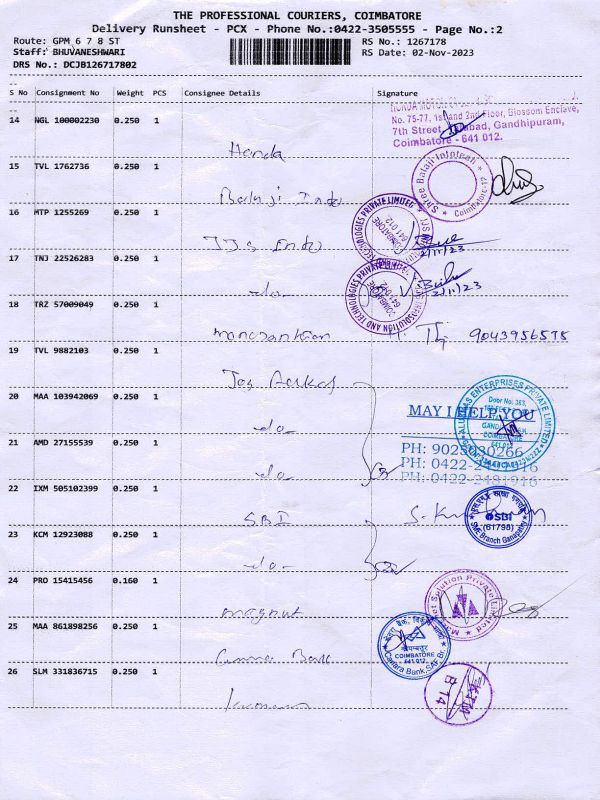 THE PROFESSIONAL COURIERS, COIMBATORE
Delivery Runsheet - PCX - Phone No.:0422-3505555 - Page No.:2
Route: GPM 6 7 8 ST
RS No.: 1267178
Staff: BHUVANESHWARI
RS Date: 02-Nov-2023
DRS No.: DCJB126717802
S No Consignment No Weight PCS Consignee Details Signature
14 NGL 100002230 0.250 1
No. 75-77, 1st and 2nd Floor, Blossom Enclave,
7th Street, Gandhipuram,
Coimbatore - 641 012.
Honda
15 TVL 1762736 0.250 1
Shree Balaji Infotech
Coimbatore-12
Balaji Info
16 MTP 1255269 0.250 1
COIMBATORE 641 012
2/11/23
IJS Info
17 TNJ 22526283 0.250 1
COIMBATORE 641 012
2/11/23
-do-
18 TRZ 57009049 0.250 1
9043956575
19 TVL 9882103 0.250 1
20 MAA 103942069 0.250 1
MAY I HELP YOU
ENTERPRISES PRIVATE LIMITED
Door No: 383,
COIMBATORE
-do-
21 AMD 27155539 0.250 1
PH: 9025030266
PH: 0422-2481916
PH: 0422-2481916
-do-
22 IXM 505102399 0.250 1
SBI
SBI
(61798)
SME Branch Ganapathy
23 KCM 12923088 0.250 1
-do-
24 PRO 15415456 0.160 1
Solution Private Limited
magnut
25 MAA 861898256 0.250 1
COIMBATORE
641 012.
Canara Bank, SAF Br.
Bank
26 SLM 331836715 0.250 1
KTM
B 14